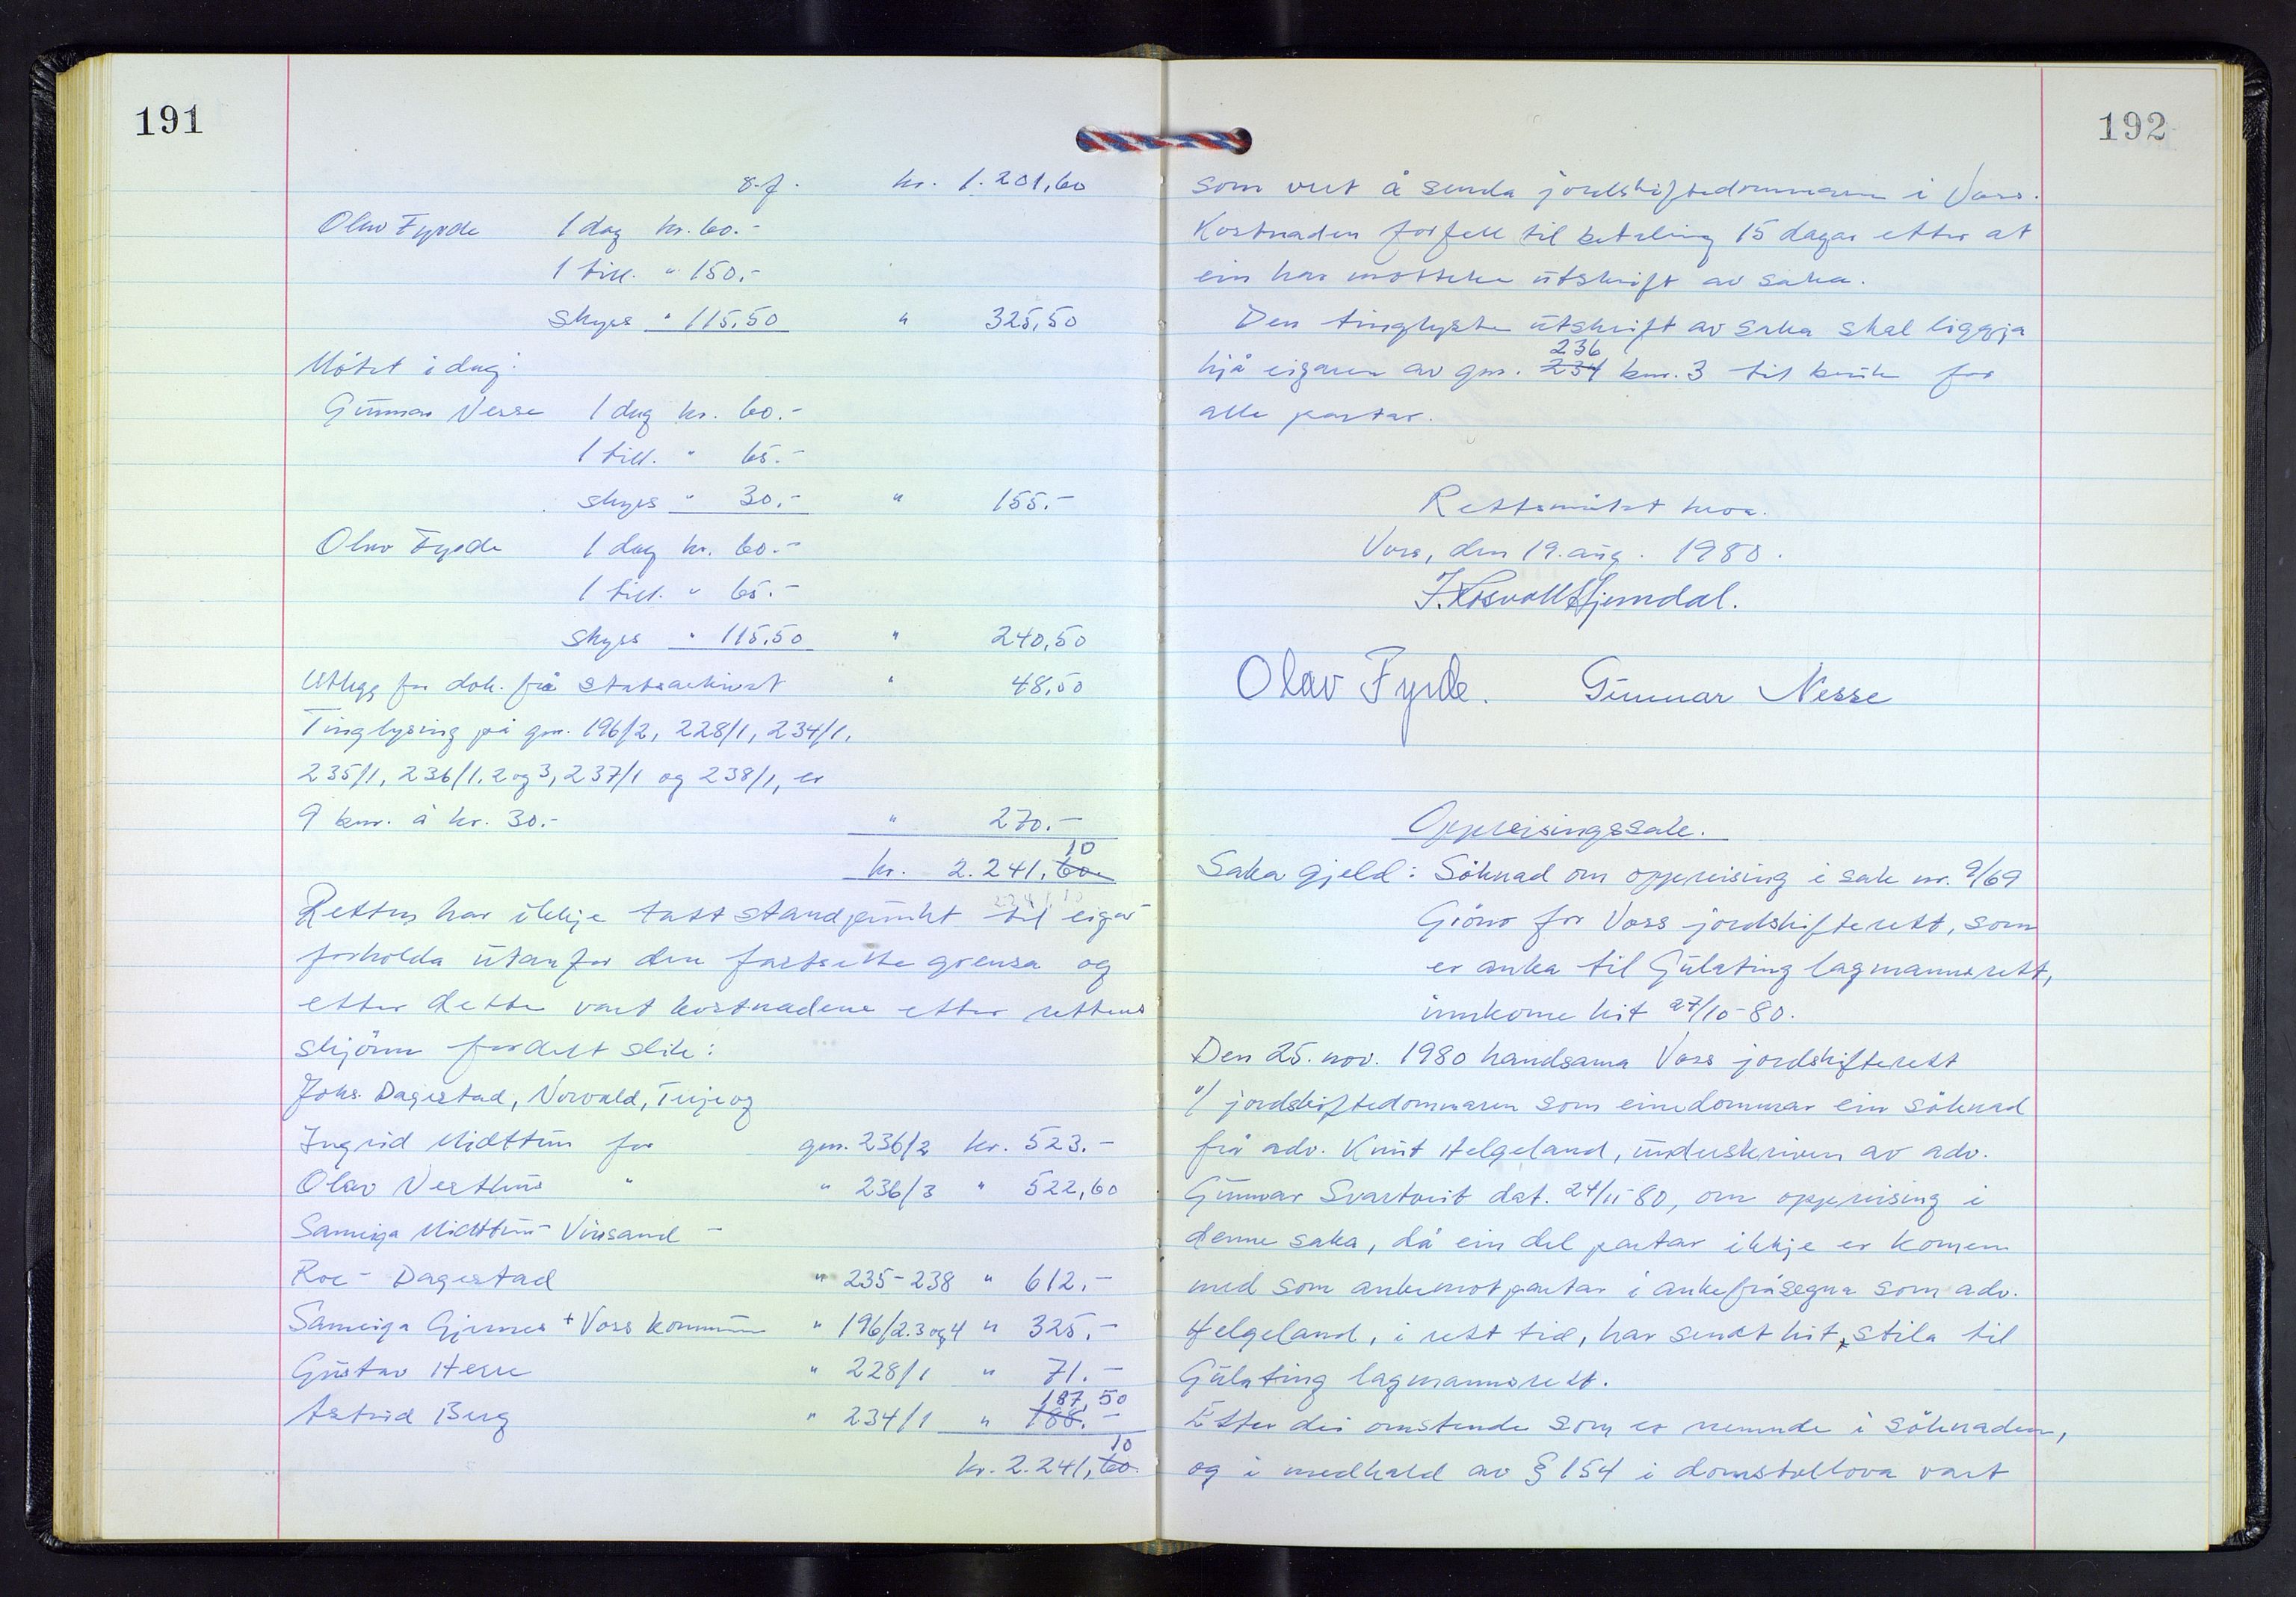 191
o.f. kr. 1.201,60
Olav Fyrde 1 dag kr. 60.-
1 till. " 150.-
skyss " 115,50 " 325,50
Møtet i dag:
Gunnar Nesse 1 dag kr. 60.-
1 till. " 65.-
skyss " 30.- " 155.-
Olav Fyrde 1 dag kr. 60.-
1 till. " 65.-
skyss " 115,50 " 240,50
Utlegg for dok. frå statsarkivet " 48,50
Tinglysing på gnr. 196/2, 228/1, 234/1,
235/1, 236/1, 2 og 3, 237/1 og 238/1, er
9 bnr. à kr. 30.- " 270.-
10
kr. 2.241,60
Retten har ikkje tatt standpunkt til eigar
forholda utanfor den fastsette grensa og
etter dette vart kostnadene etter rettens
skjönn fordelt slik:
Johs. Dagestad, Norvald, Terje og
Ingrid Midttun for gnr. 236/2 kr. 523.-
Olav Vesthus " " 236/3 " 522,60
Sameiga Midttun - Vinsand -
Roe - Dagestad " 235-238 " 612.-
Sameiga Gjernes + Voss kommune " 196/2.3 og 4 " 325.-
Gustav Herre " 228/1 " 71.-
187,50
Astrid Berg " 234/1 " 188.-
10
kr. 2.241,60
192
som vert å senda jordskiftedommaren i Voss.
Kostnaden forfell til betaling 15 dagar etter at
ein har motteke utskrift av saka.
Den tinglyste utskrift av saka skal liggja
236
hjå eigaren av gnr. 234 bnr. 3 til bruk for
alle partar.
Rettsmøtet heva.
Voss, den 19. aug. 1980.
Olav Fyrde. Gunnar Nesse
Oppreisingssak.
Saka gjeld: Söknad om oppreising i sak nr. 9/69
Gröno for Voss jordskifterett, som
er anka til Gulating lagmannsrett,
innkome hit 27/10-80.
Den 25. nov. 1980 handsama Voss jordskifterett
v/ jordskiftedommaren som einedommar ein söknad
frå adv. Knut Helgeland, underskriven av adv.
Gunnar Svartveit dat. 24/11-80, om oppreising i
denne saka, då ein del partar ikkje er komen
med som ankemotpartar i ankefråsegna som adv.
Helgeland, i rett tid, har sendt hit, stila til
Gulating lagmannsrett.
Etter dei omstende som er nemnde i söknaden,
og i medhald av § 154 i domstollova vart